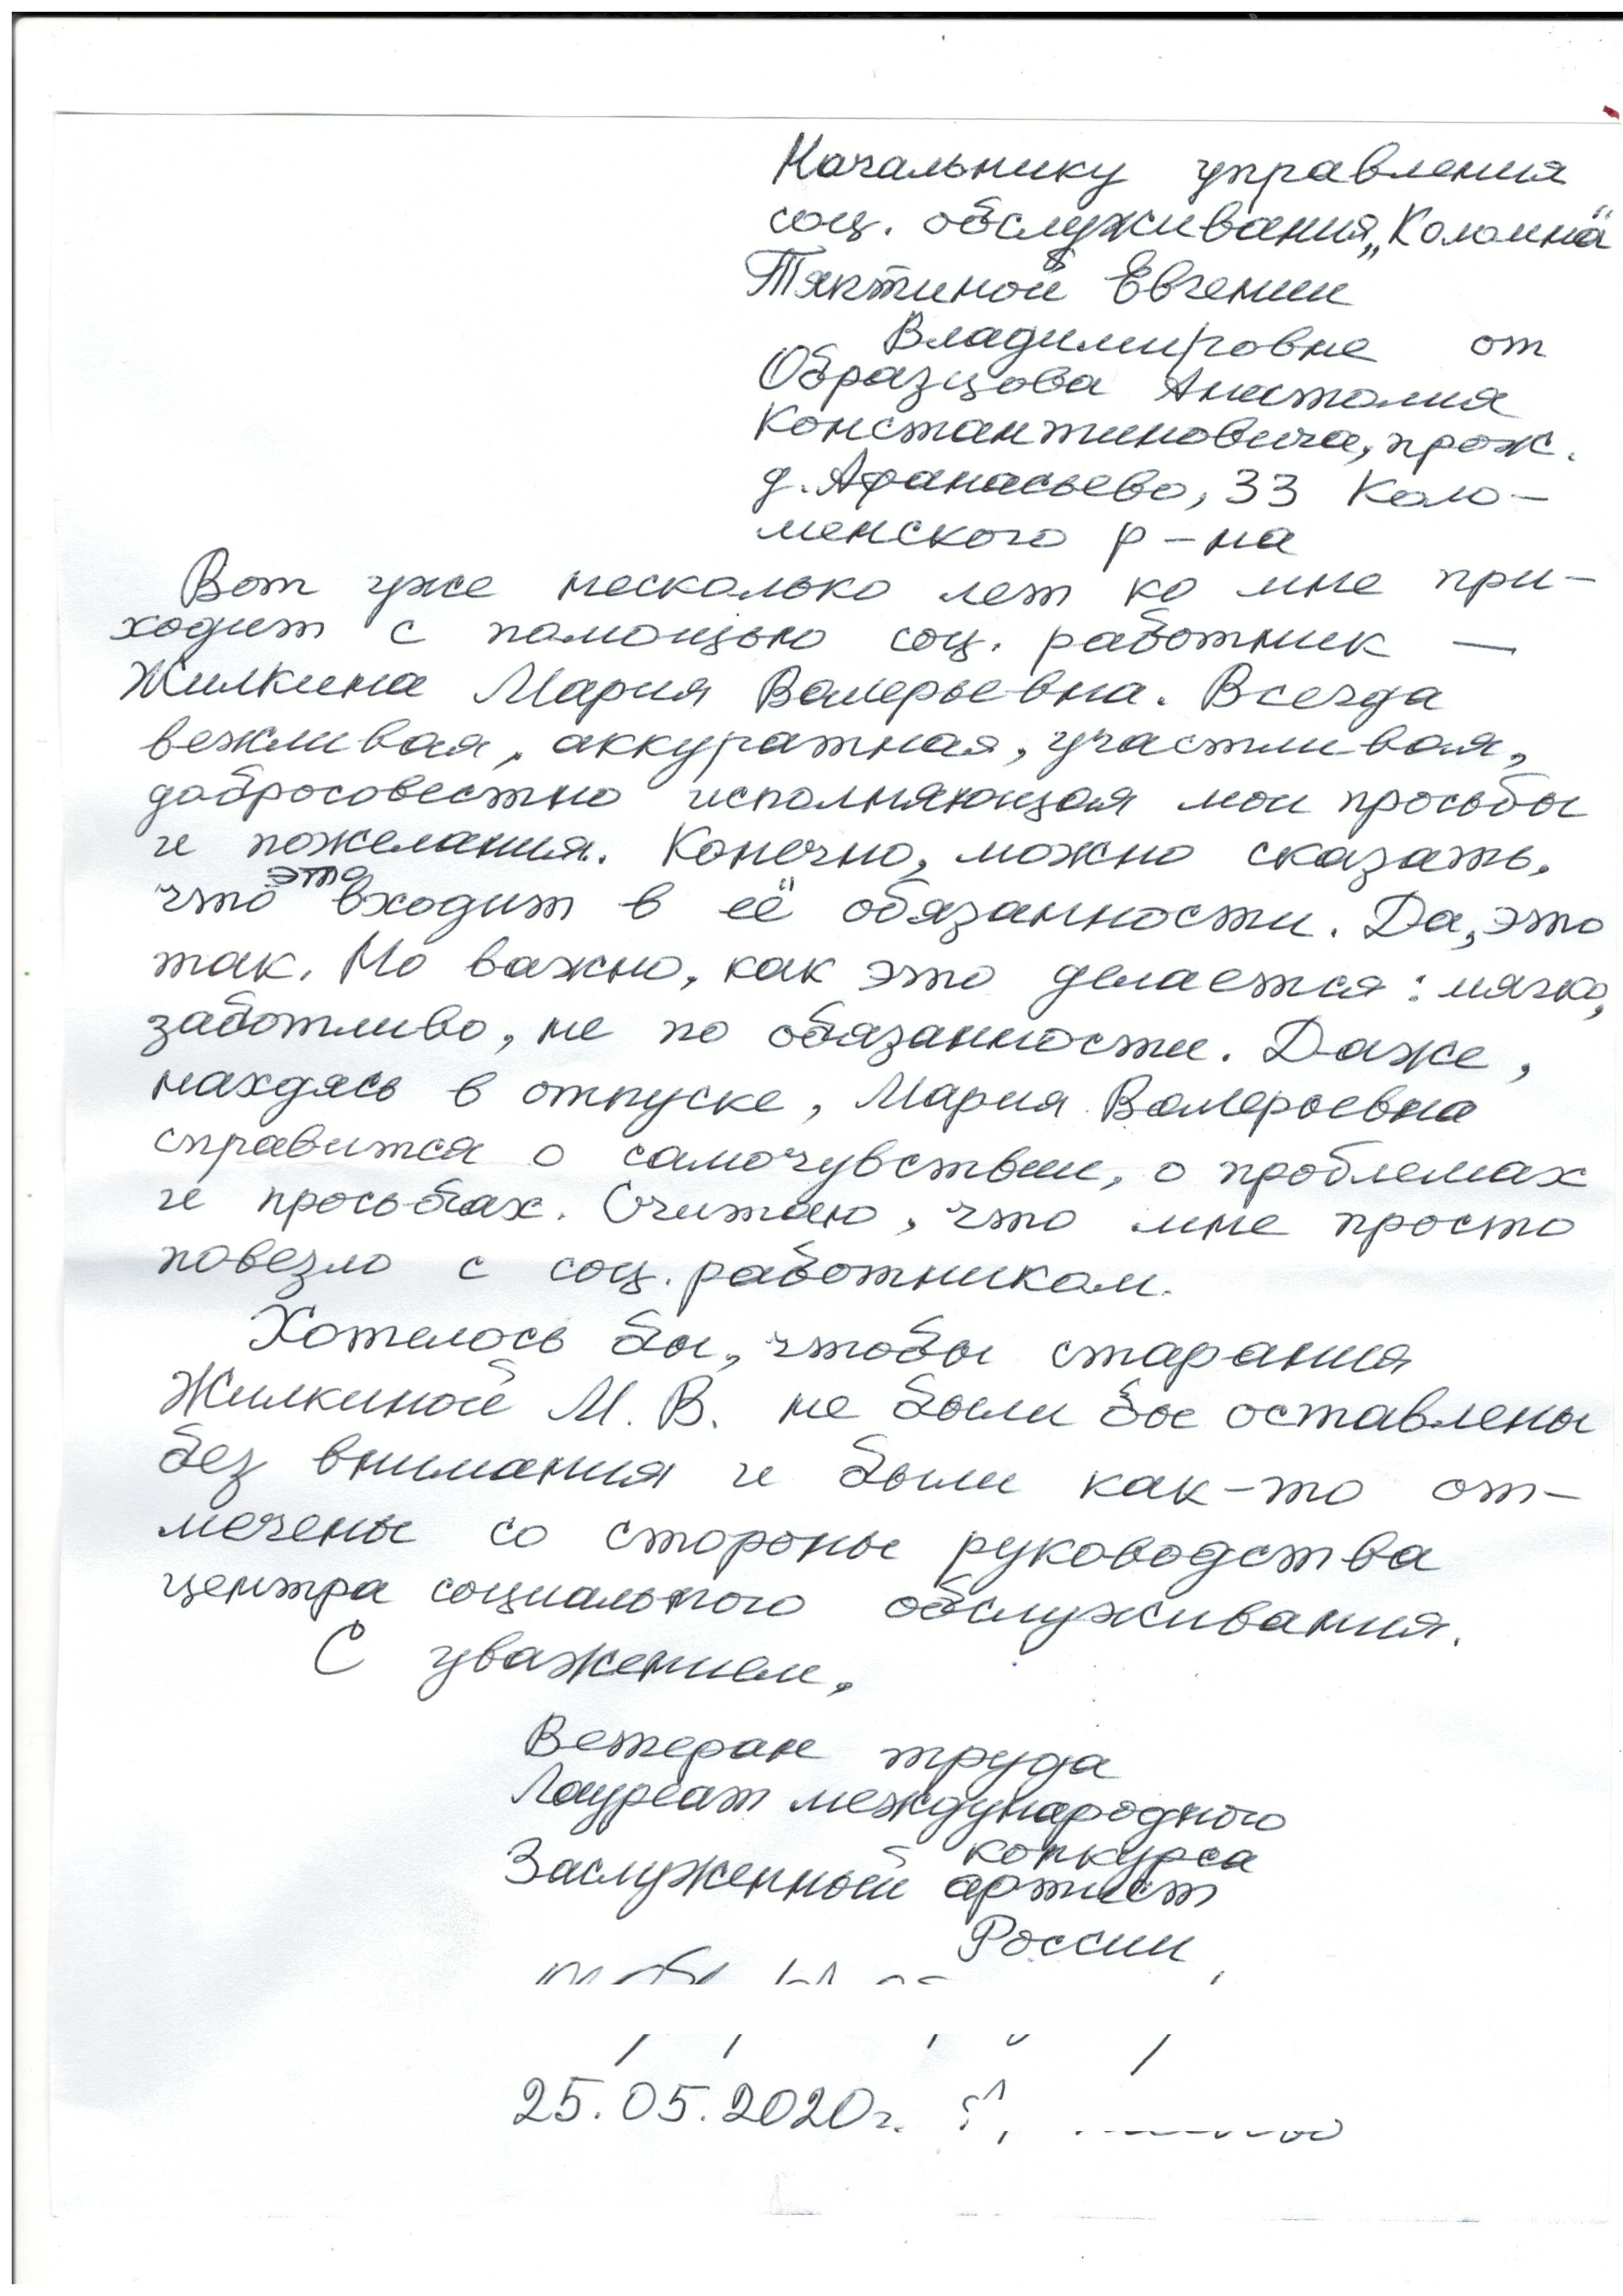 Начальнику управления
соц. обслуживания „Коломна"
Тяктиной Евгении
Владимировне от
Образцова Анатолия
Константиновича, прож.
д. Афанасьево, 33 Коло-
менского р-на
Вот уже несколько лет ко мне при-
ходит с помощью соц. работник —
Жилкина Мария Валерьевна. Всегда
вежливая, аккуратная, участливая,
добросовестно исполняющая мои просьбы
и пожелания. Конечно, можно сказать,
что это входит в её обязанности. Да, это
так. Но важно, как это делается: мягко,
заботливо, не по обязанности. Даже,
находясь в отпуске, Мария Валерьевна
справится о самочувствии, о проблемах
и просьбах. Считаю, что мне просто
повезло с соц. работником.
Хотелось бы, чтобы старания
Жилкиной М. В. не были бы оставлены
без внимания и были как-то от-
мечены со стороны руководства
центра социального обслуживания.
С уважением,
Ветеран труда
Лауреат международного
конкурса
Заслуженный артист
России
25.05.2020г.